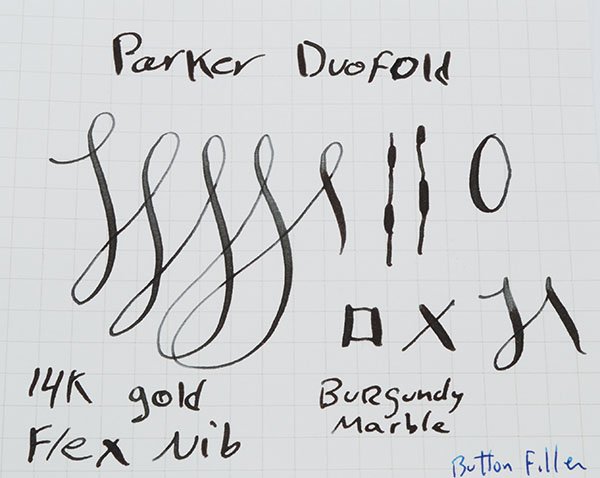 Parker Duofold
14K gold
Flex Nib
Burgundy
Marble
Button Filler